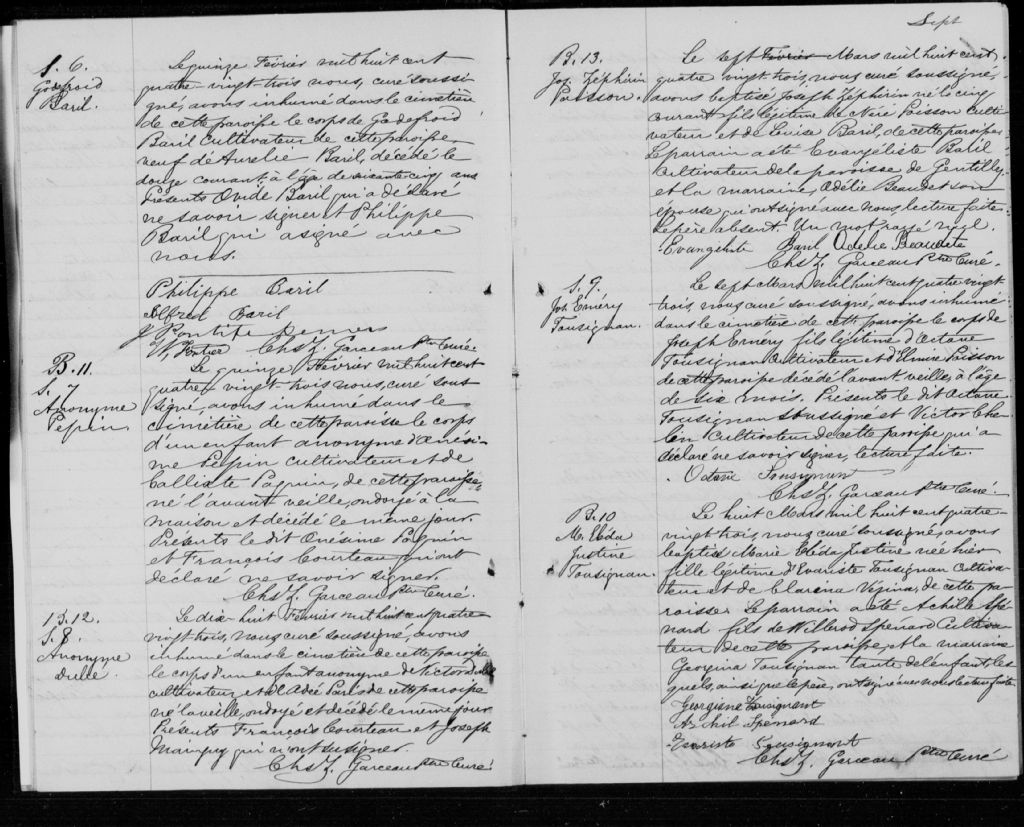 S. 6.
Godefroid
Baril.
Le quinze Février mil huit cent
quatre-vingt-trois nous, curé soussi-
gné, avons inhumé dans le cimetière
de cette paroisse le corps de Godefroid
Baril Cultivateur de cette paroisse
veuf de Aurelie Baril, décédé le
douze courant à l'âge de soixante cinq ans
Présents Ovide Baril qui a déclaré
ne savoir signer et Philippe
Baril qui a signé avec
nous.
Philippe Baril
Alfred Baril
J Pontife Demers
Chs Z. Garceau Ptre Curé.
B. 11.
S. 7
Anonyme
Pepin.
Le quinze Février mil huit cent
quatre vingt trois nous, curé sous
signé, avons inhumé dans le
cimetière de cette paroisse le corps
d'un enfant anonyme d'Onési-
me Pepin cultivateur et de
Calliste Paquin, de cette paroisse,
né l'avant veille, ondoyé à la
maison et décédé le même jour.
Présents le dit Onésime Paquin
et François Courteau qui ont
déclaré ne savoir signer.
Chs Z. Garceau Ptre Curé.
B. 12.
S. 8.
Anonyme
Dubé.
Le dix-huit Février mil huit cent quatre
vingt trois, nous curé soussigné, avons
inhumé dans le cimetière de cette paroisse
le corps d'un enfant anonyme de Victor Dubé
cultivateur, et d'Adée Paris de cette paroisse
né la veille, ondoyé et décédé le même jour
Présents François Courteau et Joseph
qui n'ont su signer.
Chs Z. Garceau Ptre Curé
Sept
B. 13.
Jos. Zéphirin
Poisson.
Le sept Février Mars mil huit cent
quatre vingt trois, nous curé soussigné,
avons baptisé Joseph Zéphirin né le cinq
courant fils légitime de Néré Poisson culti
vateur et de Louise Baril, de cette paroisse
Le parrain a été Evangéliste Baril
Cultivateur de la paroisse de Gentilly
et la marraine, Odélie Beaudet son
épouse qui ont signé avec nous lecture faite
Le père absent. Un mot rayé nul.
Evangeliste Baril Odelie Beaudete
Chs Z. Garceau Ptre Curé.
S. 9.
Jos. Émery
Tousignan.
Le sept Mars mil huit cent quatre vingt
trois, nous, curé soussigné, avons inhumé
dans le cimetière de cette paroisse le corps de
Joseph Emery fils légitime d'Octave
Tousignan Cultivateur et d'Elmire Poisson
de cette paroisse décédé l'avant veille, à l'âge
de six mois. Présents le dit Octave
Tousignan soussigné et Victor
Cultivateur de cette paroisse qui a
déclaré ne savoir signer, lecture faite.
Octave Tousignan
Chs Z. Garceau Ptre Curé.
B. 10
M. Eléda
Justine
Tousignan.
Le huit Mars mil huit cent quatre-
vingt trois, nous curé soussigné, avons
baptisé Marie Eléda Justine née hier
fille légitime d'Evariste Tousignan Cultiva-
teur et de Clarina Vézina, de cette pa-
roisse. Le parrain a été Achille Spé
nard fils de Willerod Spenard Cultiva-
teur de cette paroisse, et la marraine
Georgina Tousignan tante de l'enfant les
quels, ainsi que le père, ont signé avec nous lecture faite
Georgisne Tousignant
Archil Spénard
Evariste Tousignant
Chs Z. Garceau Ptre Curé